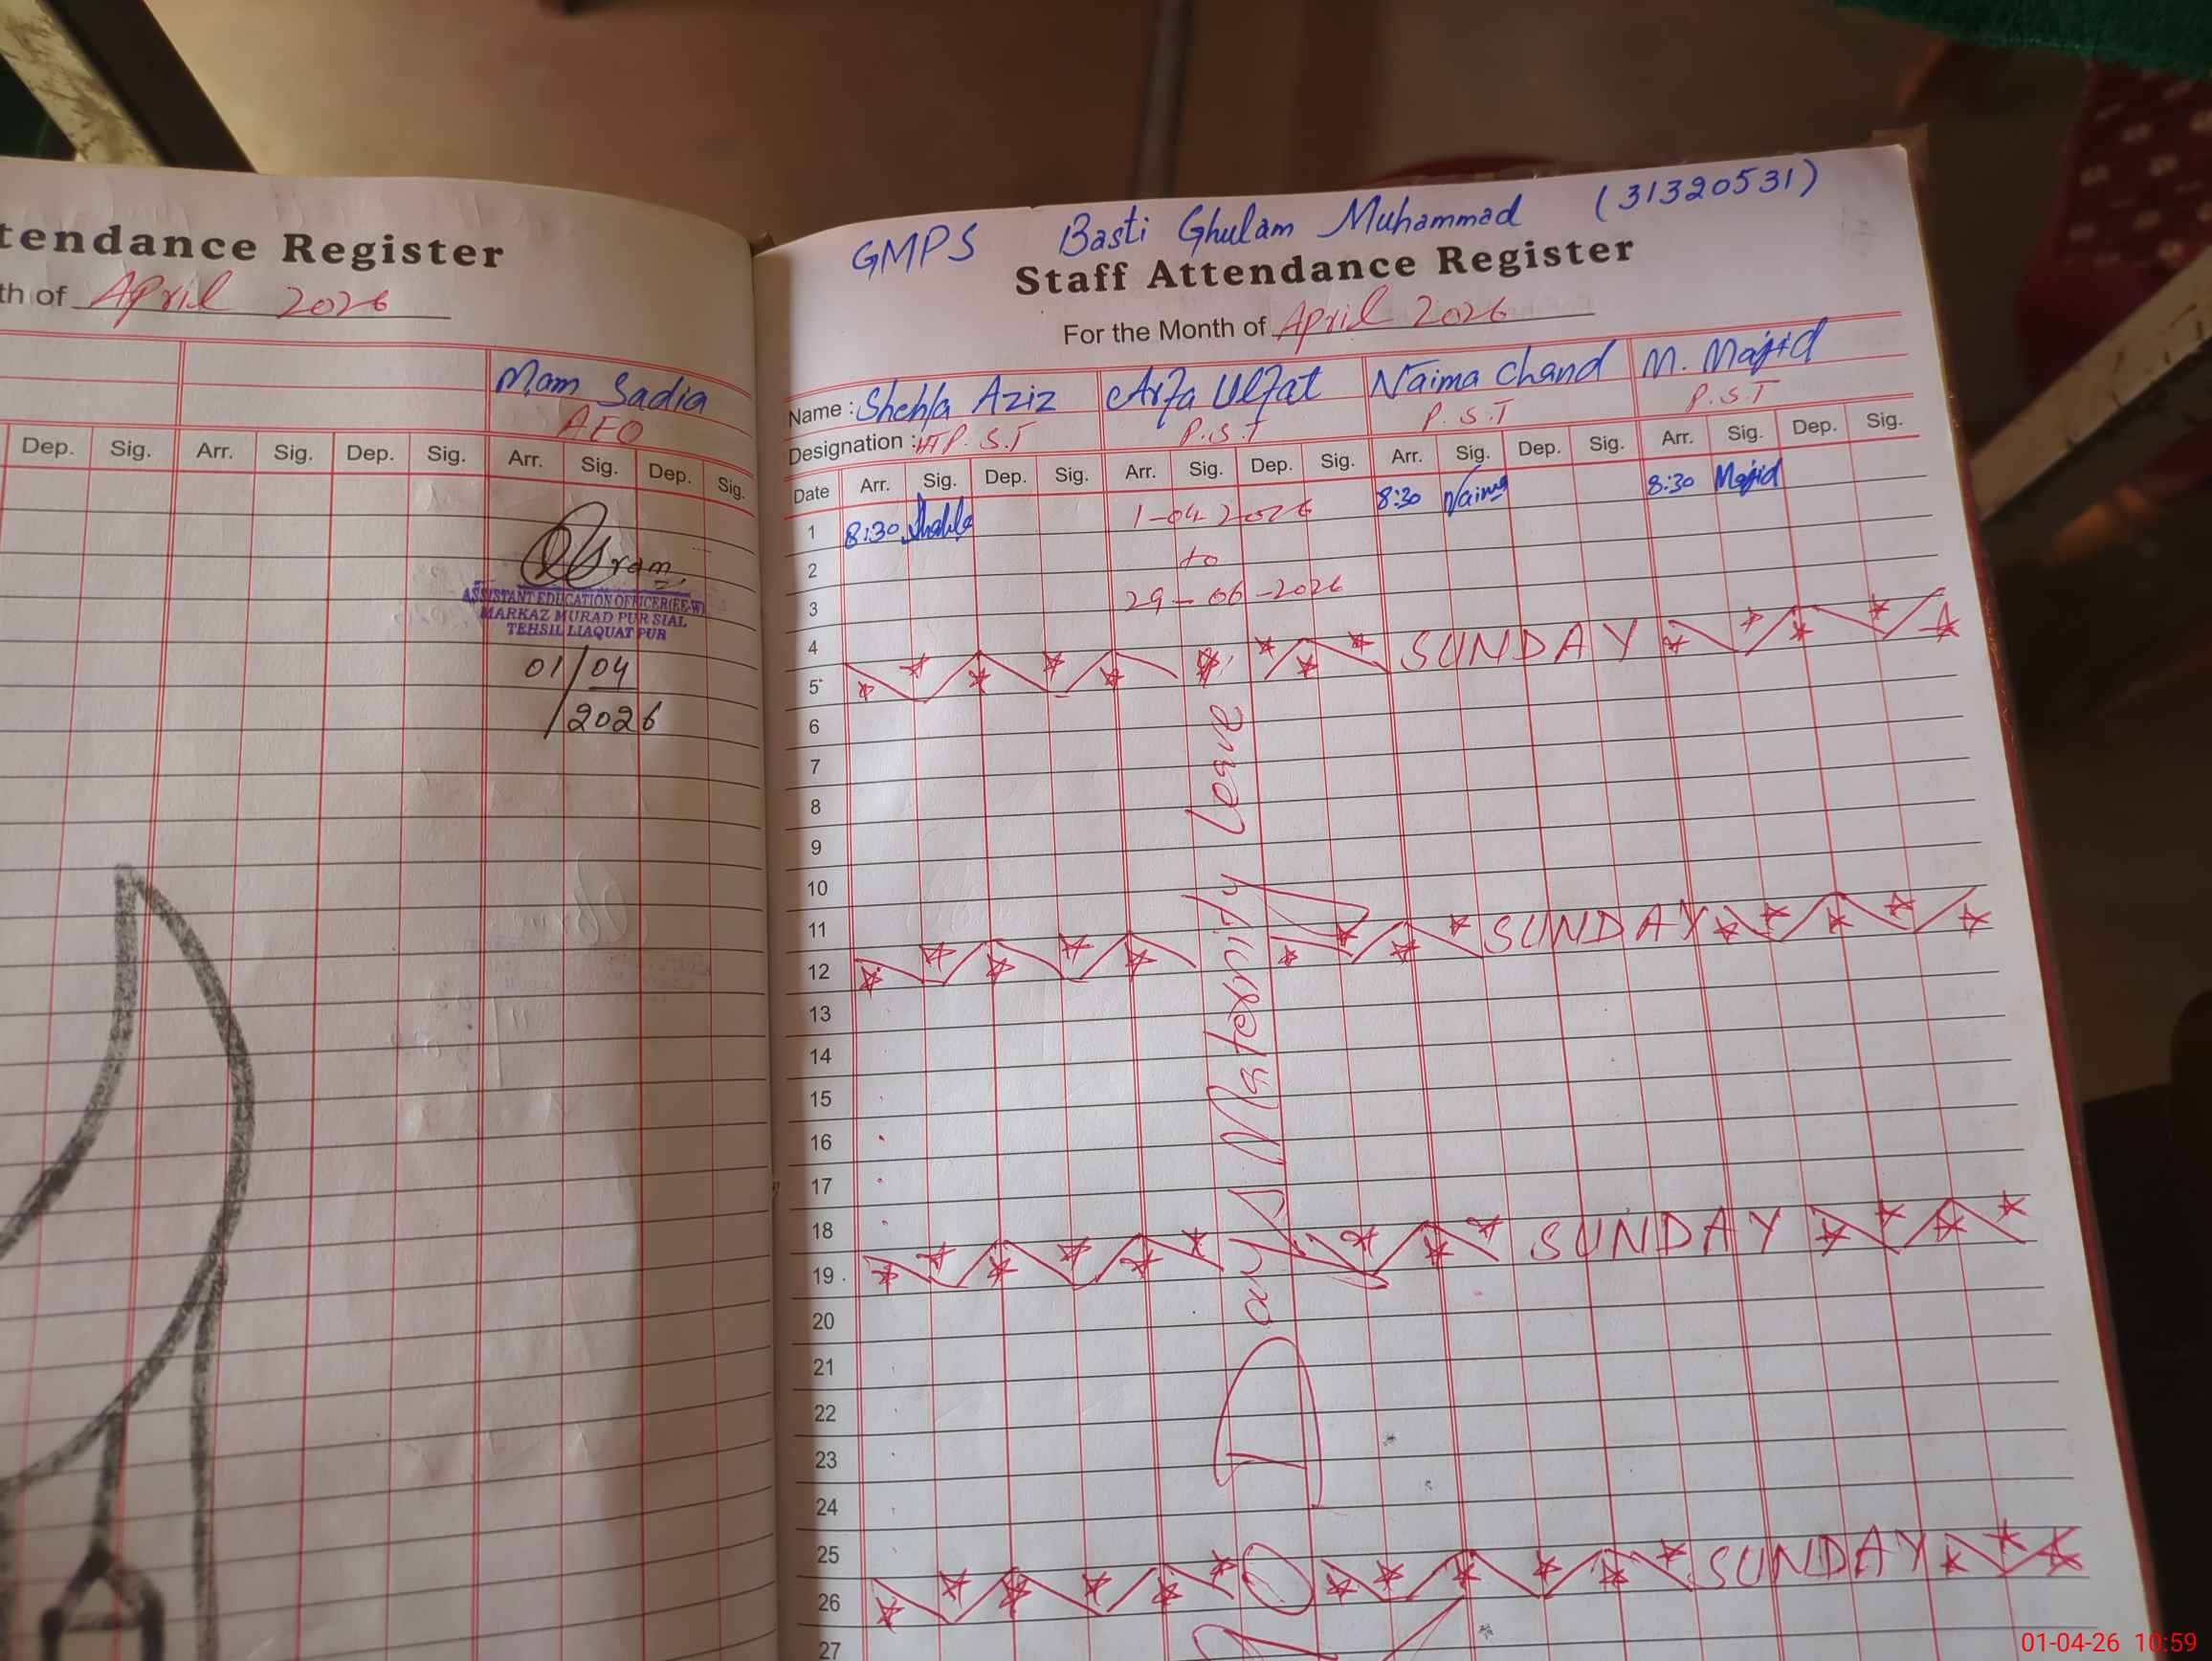 tendance Register
th of April 2026
Mam Sadia
AEO
Dep. Sig. Arr. Sig. Dep. Sig. Arr. Sig. Dep. Sig.
ASSISTANT EDUCATION OFFICER (EE-W)
MARKAZ MURAD PUR SIAL
TEHSIL LIAQUAT PUR
01/04
/2026
GMPS Basti Ghulam Muhammad (31320531)
Staff Attendance Register
For the Month of April 2026
Name : Shehla Aziz Arfa Ulfat Naima Chand M. Majid
Designation : P.S.T P.S.T P.S.T P.S.T
Date Arr. Sig. Dep. Sig. Arr. Sig. Dep. Sig. Arr. Sig. Dep. Sig. Arr. Sig. Dep. Sig.
1 8:30 Shehla 1-04-2026 8:30 Naima 8:30 Majid
2 to
3 29-06-2026
4 SUNDAY
5
6
7
8
9
10
11 SUNDAY
12
13
14
15
16
17
18 SUNDAY
19
20
21
22
23
24
25 SUNDAY
26
27
Days Maternity Leave
01-04-26 10:59